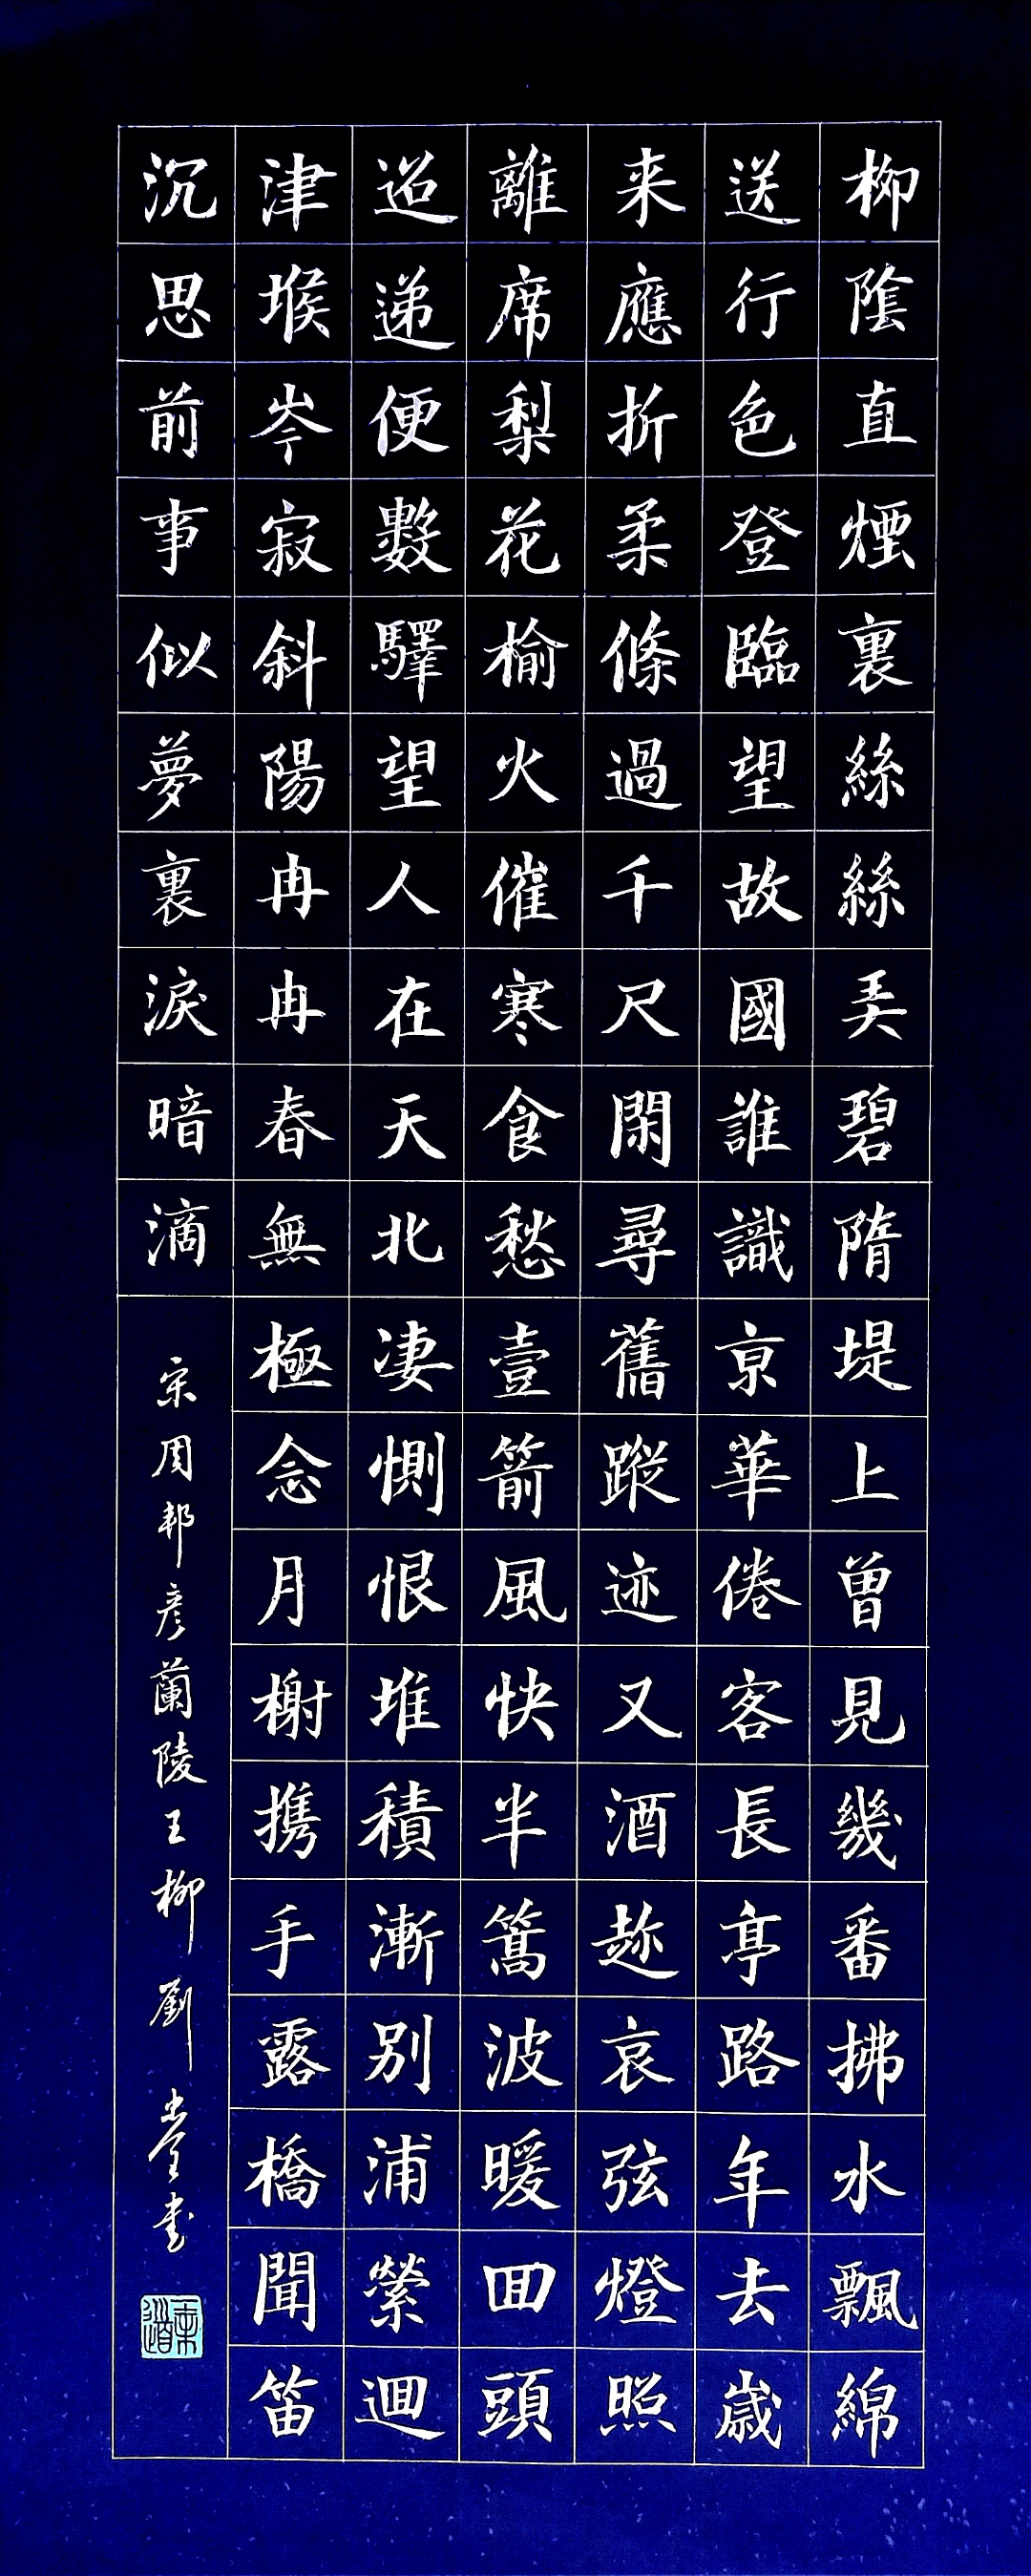 柳陰直煙裏絲絲弄碧隋堤上曾見幾番拂水飄綿
送行色登臨望故國誰識京華倦客長亭路年去歲
来應折柔條過千尺閑尋舊蹤迹又酒趂哀弦燈照
離席梨花榆火催寒食愁壹箭風快半篙波暖回頭
迢递便數驛望人在天北凄惻恨堆積漸别浦縈迴
津堠岑寂斜陽冉冉春無極念月榭携手露橋聞笛
沉思前事似夢裏淚暗滴
宋周邦彦蘭陵王柳劉書